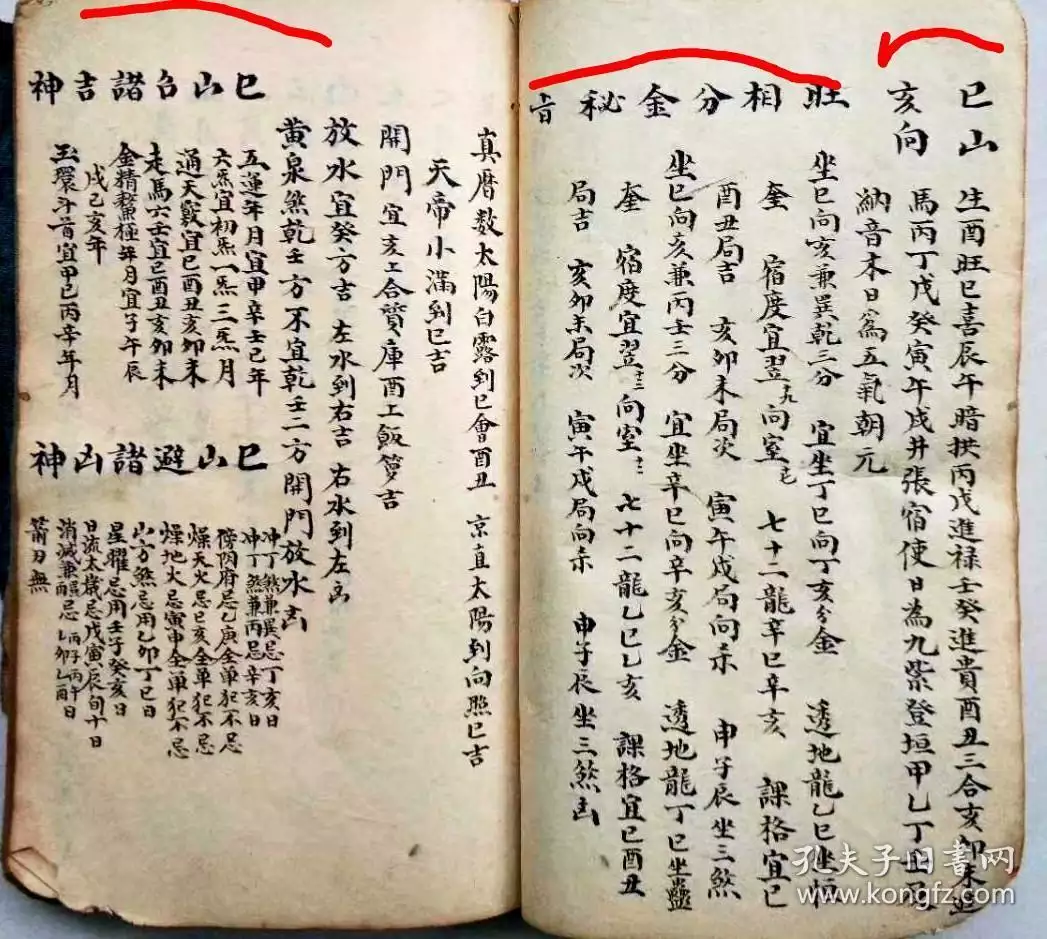 巳山
亥向
生酉旺巳喜辰午暗拱丙戊進禄壬癸進貴酉丑三合亥卯未進
馬丙丁戊癸寅午戌井張宿使日為九紫登垣甲乙丁
納音木日為五氣朝元
旺相分金秘旨
坐巳向亥兼巽乾三分 宜坐丁巳向丁亥分金 透地龍乙巳坐
奎 宿度宜翌九向室七 七十二龍辛巳辛亥 課格宜巳
酉丑局吉 亥卯未局次 寅午戌局向杀 申子辰坐三煞
坐巳向亥兼丙壬三分 宜坐辛巳向辛亥分金 透地龍丁巳坐蠱
奎 宿度宜翌十三向室十二 七十二龍乙巳乙亥 課格宜巳酉丑
局吉 亥卯未局次 寅午戌局向杀 申子辰坐三煞凶
真曆数太陽白露到巳會酉丑 京直太陽到向照巳吉
天帝小滿到巳吉
開門宜亥工合寶庫酉工飯箩吉
放水宜癸方吉 左水到右吉 右水到左凶
黄泉煞乾壬方不宜乾壬二方開門放水凶
巳山合諸吉神
五運年月宜甲辛壬己年
六炁宜初炁一炁三炁月
通天竅宜巳酉丑亥卯未
走馬六壬宜巳酉丑亥卯未
金精鰲極年月宜子午辰
戌己亥年
玉環斗首宜甲己丙辛年月
巳山避諸凶神
冲丁煞兼巽忌丁亥日
冲丁煞兼丙忌辛亥日
傍陰府忌乙庚全單犯不忌
燥天火忌巳亥全單犯不忌
燥地火忌寅申全單犯不忌
山方煞忌用乙卯丁巳日
星曜忌用壬子癸亥日
日流太歲忌戊寅辰旬十日
消滅兼忌丙子丙午乙卯乙酉日
箭刃無
孔夫子旧書网
www.kongfz.com